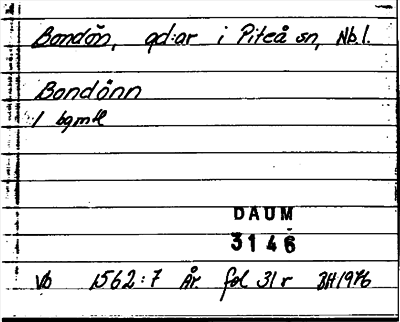 Bondön, gd:ar i Piteå sn, Nb.l.
Bondönn
1 bgmtl
DAUM
3146
Vb 1562:7 År. fol 31 r BH1976